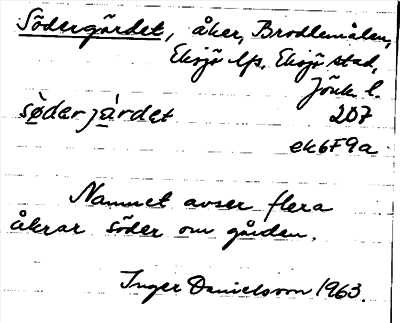 Södergärdet, åker, Brodlemålen,
Eksjö lfs. Eksjö stad,
Jönk. l.
södərjàrdət 2D7
ek6F9a
Namnet avser flera
åkrar söder om gården.
Inger Danielsson 1963.